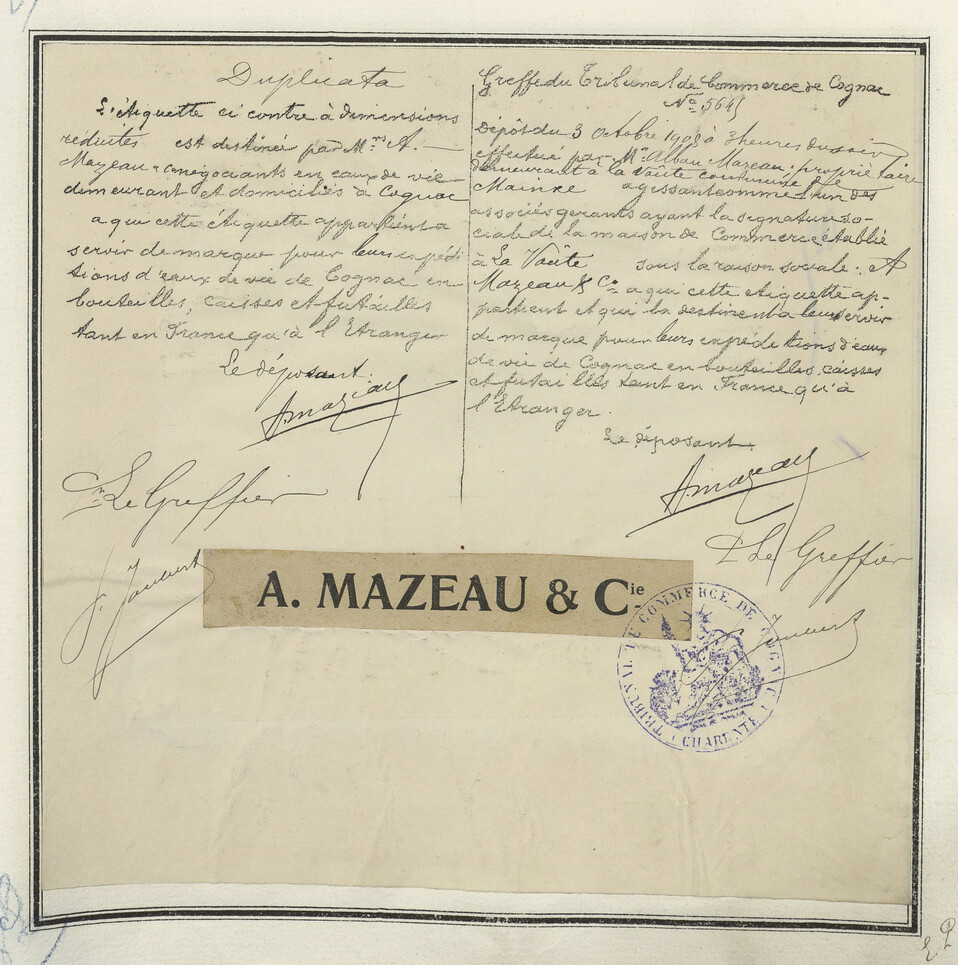 Duplicata
L'étiquette ci contre à dimensions
réduites est destinée par Mrs A.
Mazeau négociants en eaux de vie
dimeurant et domiciliés à Cognac
a qui cette étiquette appartient a
servir de marque pour leurs expédi
tions d'eaux de vie de Cognac en
bouteilles, caisses et futailles
tant en France qu'à l'Etranger
Le déposant.
A Mazeau
Le Greffier
Joubert
Greffe du Tribunal de Commerce de Cognac
No 5645
Dépôt du 3 Octobre à 3 heures du soir
effectué par Mr Alban Mazeau, propriétaire
demeurant à la Vaûte commune de
Mainxe agissant comme l'un des
associés gerants ayant la signature so-
ciale de la maison de Commerce établie
à La Vaûte sous la raison sociale: A
Mazeau & Cie a qui cette etiquette ap-
partient et qui la destinent a leur servir
de marque pour leurs expéditions d'eaux
de vie de Cognac en bouteilles, caisses
et futailles tant en France qu'à
l'Etranger.
Le déposant
A Mazeau
Le Greffier
Joubert
A. MAZEAU & Cie.
TRIBUNAL DE COMMERCE DE COGNAC (CHARENTE)